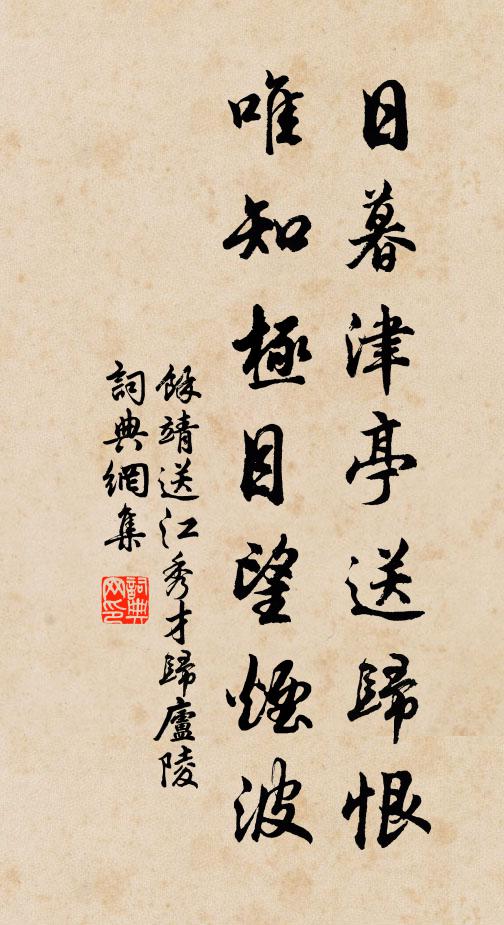 日暮津亭送歸恨
唯知極目望煙波
餘靖送江秀才歸廬陵
詞典網集
詞典网印